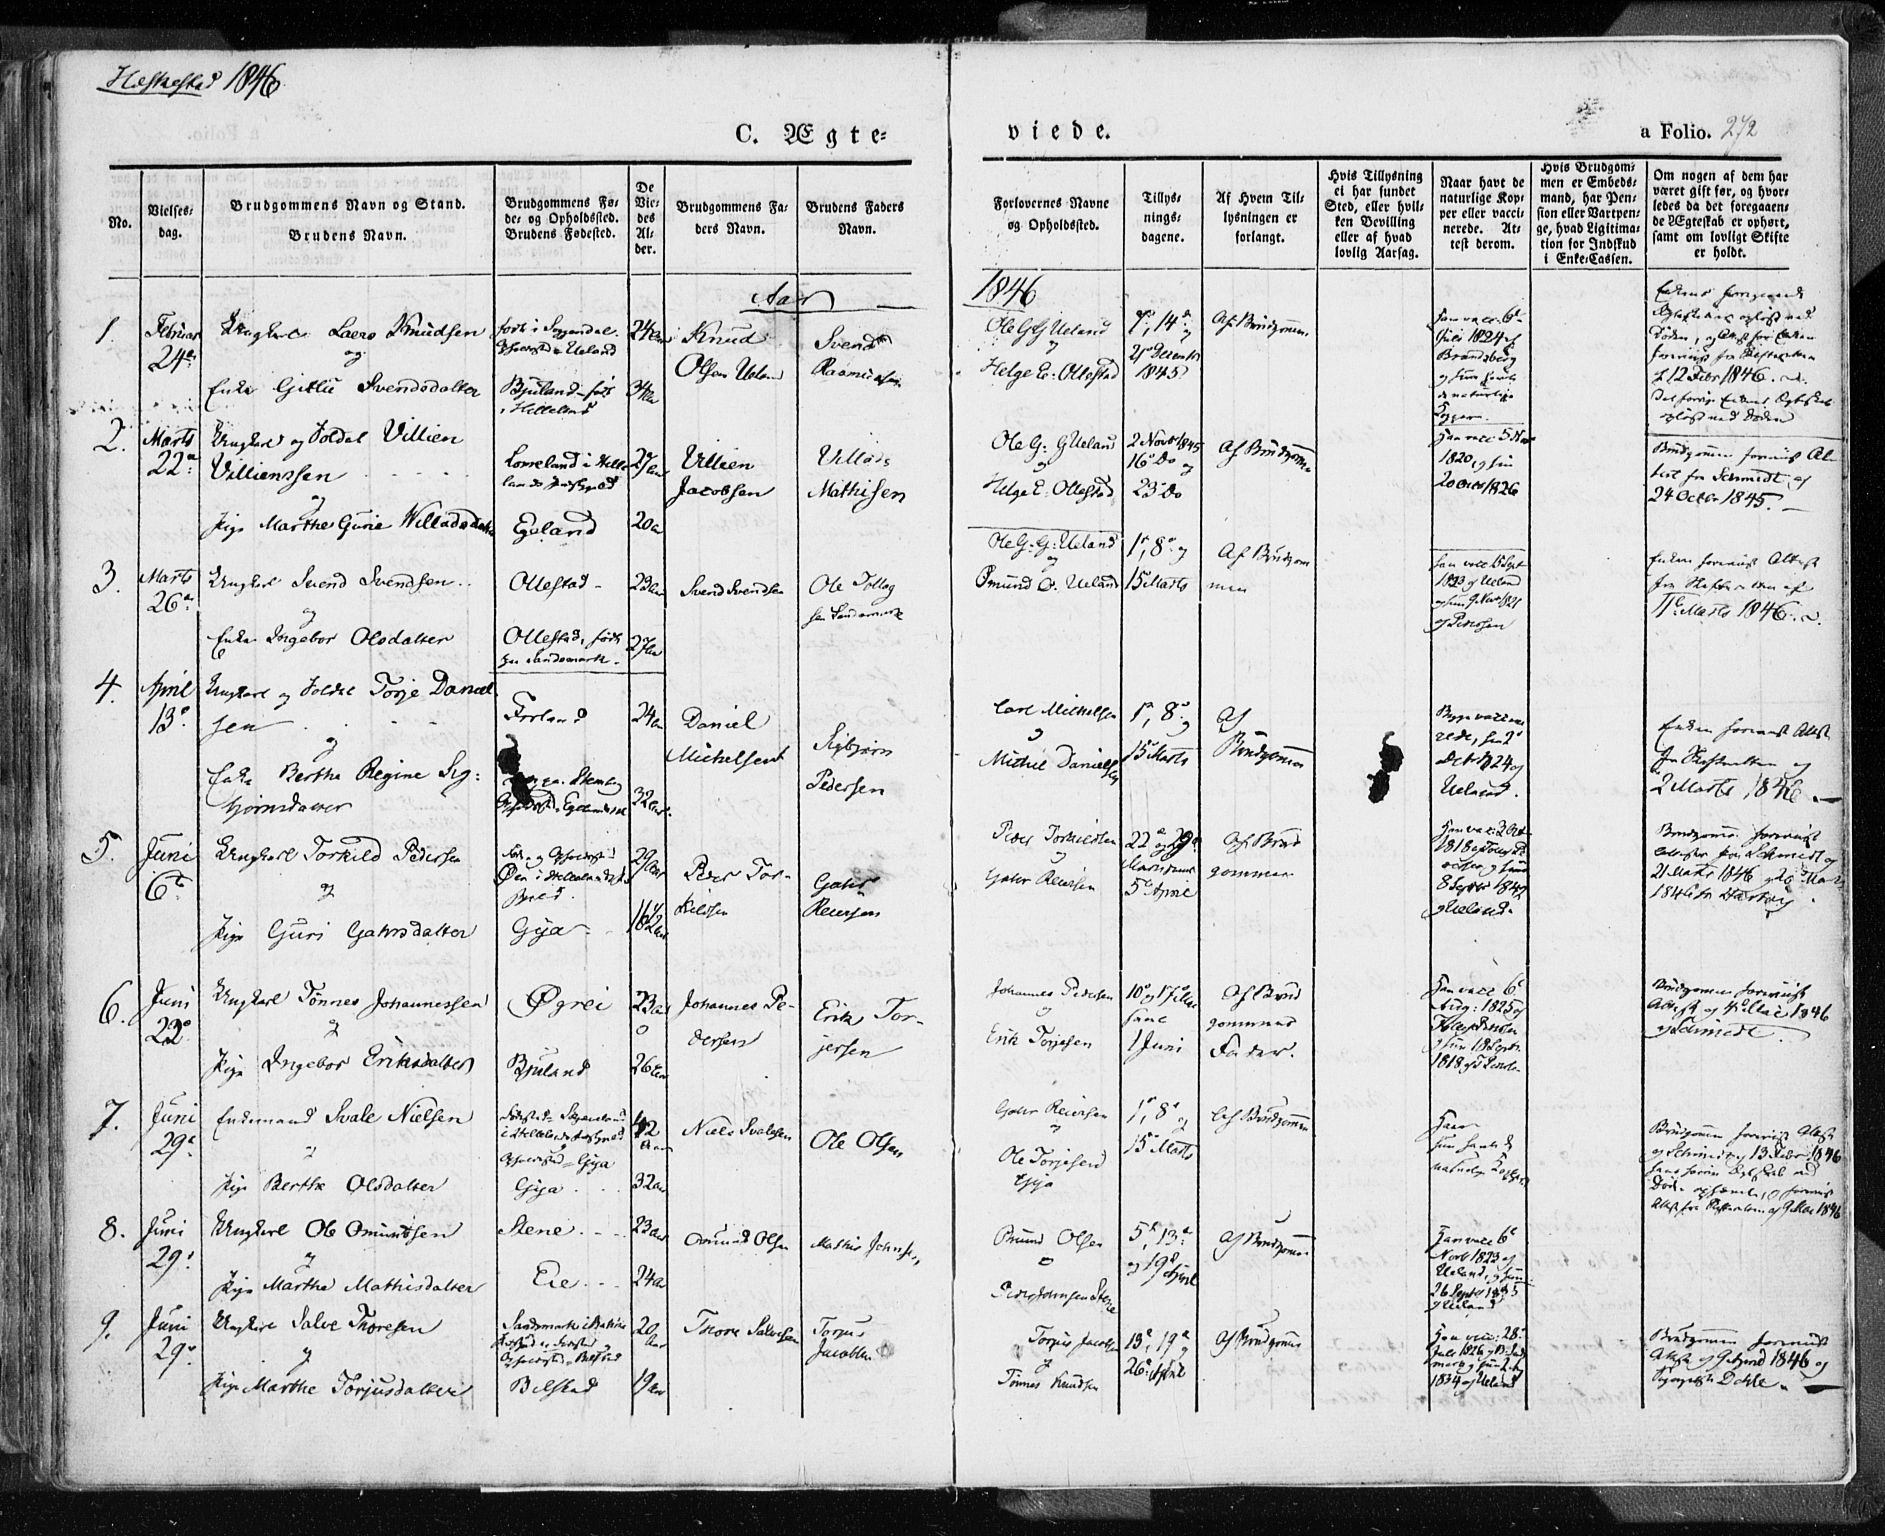 Hæskestad 1846
C. Ægte-
viede.
a Folio. 272
No.
Vielses-
dag.
Brudgommens Navn og Stand.
Brudens Navn.
Brudgommens Fø-
de- og Opholdssted.
Brudens Fødested.
De
Vie-
des
Al-
der.
Brudgommens Fa-
ders Navn.
Brudens Faders
Navn.
Forlovernes Navne
og Opholdssted.
Tillys-
nings-
dagene.
Af Hvem Til-
lysningen er
forlangt.
Hvis Tillysning
ei har fundet
Sted, eller hvil-
ken Bevilling
eller af hvad
lovlig Aarsag.
Naar havt de
naturlige Kop-
per eller vacci-
nerede. At-
test derom.
Hvis Brudgom-
men er Embeds-
mand, har Pen-
sion eller Vartpen-
ge, hvad Legitima-
tion for Indskud
i Enke-Cassen.
Om nogen af dem har
været gift før, og hvor-
ledes da det foregaaen-
de Ægteskab er ophørt,
samt om lovligt Skifte
er holdt.
Aar
1846
1.
Februar
24de
Ungkarl Laers Knudsen
og
Enke Gjertie Svendsdatter
født i Soggendal
Opholdsted Ueland
Bjuland født
i Helleland
24 Aar
34 Aar
Knud
Olsen Ueland
Svend
Rasmussen
Ole G G Ueland
og
Helge E. Ollestad
7de, 14de og
21de Decemb
1845
Af Brudgommen
1824 af
Brandsberg
og hun havt
de naturlige
Kopper
Enkens foregaaende
12 Febr 1846
2.
Marts
22de
Ungkarl og Soldat Villien
Villienssen
og
Pige Marthe Gurie Willadsdatter
Lomeland i Helle-
lands Præstegjeld
Egeland
27 Aar
20 Aar
Villien
Jacobsen
Villads
Mathisen
Ole G: G Ueland
og
Helge E: Ollestad
2 Novb 1845
16de Do og
23de Do
Af Brudgommen
Han vacc 5
1820, og hun
20 Octb 1826
Brudgommen forevist At-
test fra Schmidt af
24 Octbr 1845.
3.
Marts
26de
Ungkarl Svend Svendsen
og
Enke Ingebor Olsdatter
Ollestad
Ollestad, født
paa Sandsmark
23 Aar
27 Aar
Svend Svendsen
Ole Tollag
sen Sandsmark
Ole G: G: Ueland
og
Omund O. Ueland
1ste, 8de og
15 Marts
Af Brudgom
men
Han vacc 15 Sept
1823 af Ueland
og hun 9 Nov 1821
af Peterssen
Enken forevist Attest
fra Skifteretten af
11te Marts 1846
4.
April
13de
Ungkarl og Soldat Torje Daniel
sen
og
Enke Berthe Regine Sig-
bjørnsdatter
Forland
24 Aar
32 Aar
Daniel
Michelsen
Sigbjørn
Pedersen
Carl Michelsen
og
Michel Danielsen
1ste, 8de og
15de Marts
Af
Brudgommen
Begge vacci
nerede, hun 2de
Octbr 1824 af
Ueland.
Enken forevist Attest
fra Skifteretten af
2 Marts 1846
5.
Juni
6te
Ungkarl Torkild Pedersen
og
Pige Guri Gahrsdatter
Føde- og Opholdsted
Øen i Hellelands
Gjeld
Gya
29 Aar
16½ Aar
Peder Tor-
kildsen
Gahr
Reiersen
Peder Torkildsen
og
Gahr Reiersen
22de og 29de
Marts samt
5te April
Af Brud
gommen
Han vacc 2 Oct
1818
og Ueland
Brudgommen forevist
Attester fra Schmidt af
21 Marts 1846 og 26 Marts
1846 fra Hartvig
6.
Juni
22de
Ungkarl Tønnes Johannessen
og
Pige Ingebor Eriksdatter
Øgrei
Bjuland
23 Aar
26 Aar
Johannes Pe-
dersen
Erik Tor-
jersen
Johannes Pedersen
og
Erik Torjesen
10de og 17de Mai
samt
1 Juni
Af Brud
gommens
Fader.
Han vacc 6te
Aug: 1825 af
og hun 18 Septr.
1818
Brudgommen forevist
Attest af 9 Mai 1846
af Schmidt.
7.
Juni
29de
Enkemand Svale Nielsen
og
Pige Berthe Olsdatter
Opholdsted Gya
Gya
42
Aar
32 Aar
Niels Svalesen
Ole Olsen
Gahr Reiersen
og
Ole Torjesen
Gya
1ste, 8de og
15de Marts
Af Brudgommen
Han og
hun havt de
naturlige Kopper
Brudgommen forevist Attest
af Schmidt af 13 Febr 1846
Attest fra Skifteretten af 9 Mai 1846
8.
Juni
29de
Ungkarl Ole Omundsen
og
Pige Marthe Mathisdatter
Stene
Eie
23 Aar
24 Aar
Omund Olsen
Mathis Johnsen
Omund Olsen
og
Peder Johnsen Stene
5te, 13de
og 19de April
Af Brudgommen
Han vacc 6te
Novb 1823 af
Ueland, og hun
26 Septbr
af Ueland
9.
Juni
29de
Ungkarl Salve Thoresen
og
Pige Marthe Torjusdatter
Sandsmark i Bakke
Opholdsted Bilstad
Bilstad
20
Aar
19 Aar
Thore Salvesen
Torjus
Jacobsen
Torjus Jacobsen
og
Tønnes Knudsen
13de, 19de og
26de April
Af Brudgommen
Han vacc: 28de
Juli 1826
1834 af Ueland
Brudgommen forevist
Attest af 9 April 1846 af
Sogneprest Dahle